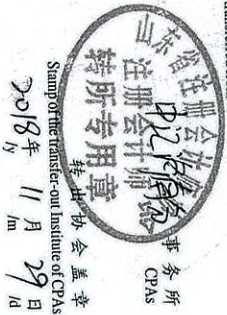 事务所
CPAs
山东省注册会计师协会
注册会计师
转所专用章
转出协会盖章
Stamp of the transfer-out Institute of CPAs
2018年 11月 29日
/y /m /d